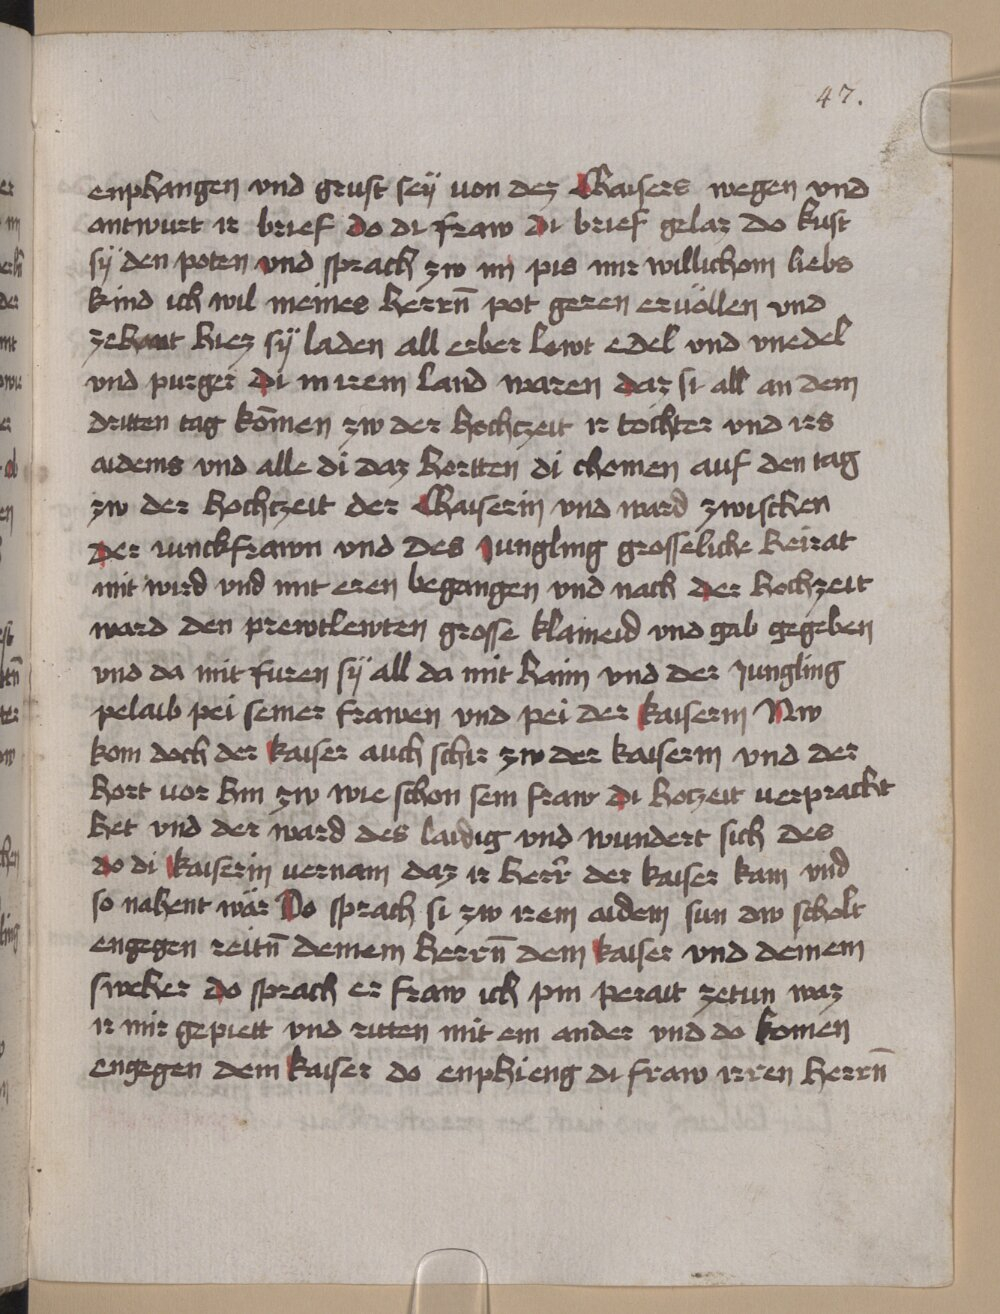 47.
enphangen vnd grust seÿ von dez Chaisers wegen vnd
antwurt ir brief do di fraw di brief gelaz do kust
sÿ den poten vnd sprach zw im pis mir willichom liebs
kind ich wil meines herrn̄ pot geren ervöllen vnd
zehant hiez sÿ laden all erber lewt edel vnd vnedel
vnd purger di in irem land waren daz si all an dem
dritten tag kōmen zw der hochczeit ir tochter vnd irs
aidems vnd alle di daz hortten di chomen auf den tag
zw der hochczeit der Chaiserin vnd ward zwischen
der iunckfrawn vnd des Jungling grosseliche heirat
mit wird vnd mit eren begangen vnd nach der hochzeit
ward den prewtlewten grosse klaineid vnd gab gegeben
vnd da mit furen sÿ all da mit haim vnd der Jungling
pelaib pei seiner frawen vnd pei der kaiserin Nw
kom doch der kaiser auch schir zw der kaiserin vnd der
hort vor hin zw wie schon sein fraw di hotzeit verpracht
het vnd der ward des laidig vnd wundert sich des
do di kaiserin vernam daz ir herr̄ der kaiser kam vnd
so nahent wär Do sprach si zw irem aidem sun dw scholt
engegen reitn̄ deinem herrn̄ dem kaiser vnd deinem
sweher do sprach er fraw ich pin perait zetun waz
ir mir gepiett vnd ritten mit ein ander vnd do komen
engegen dem kaiser do enphieng di fraw irren herrn̄